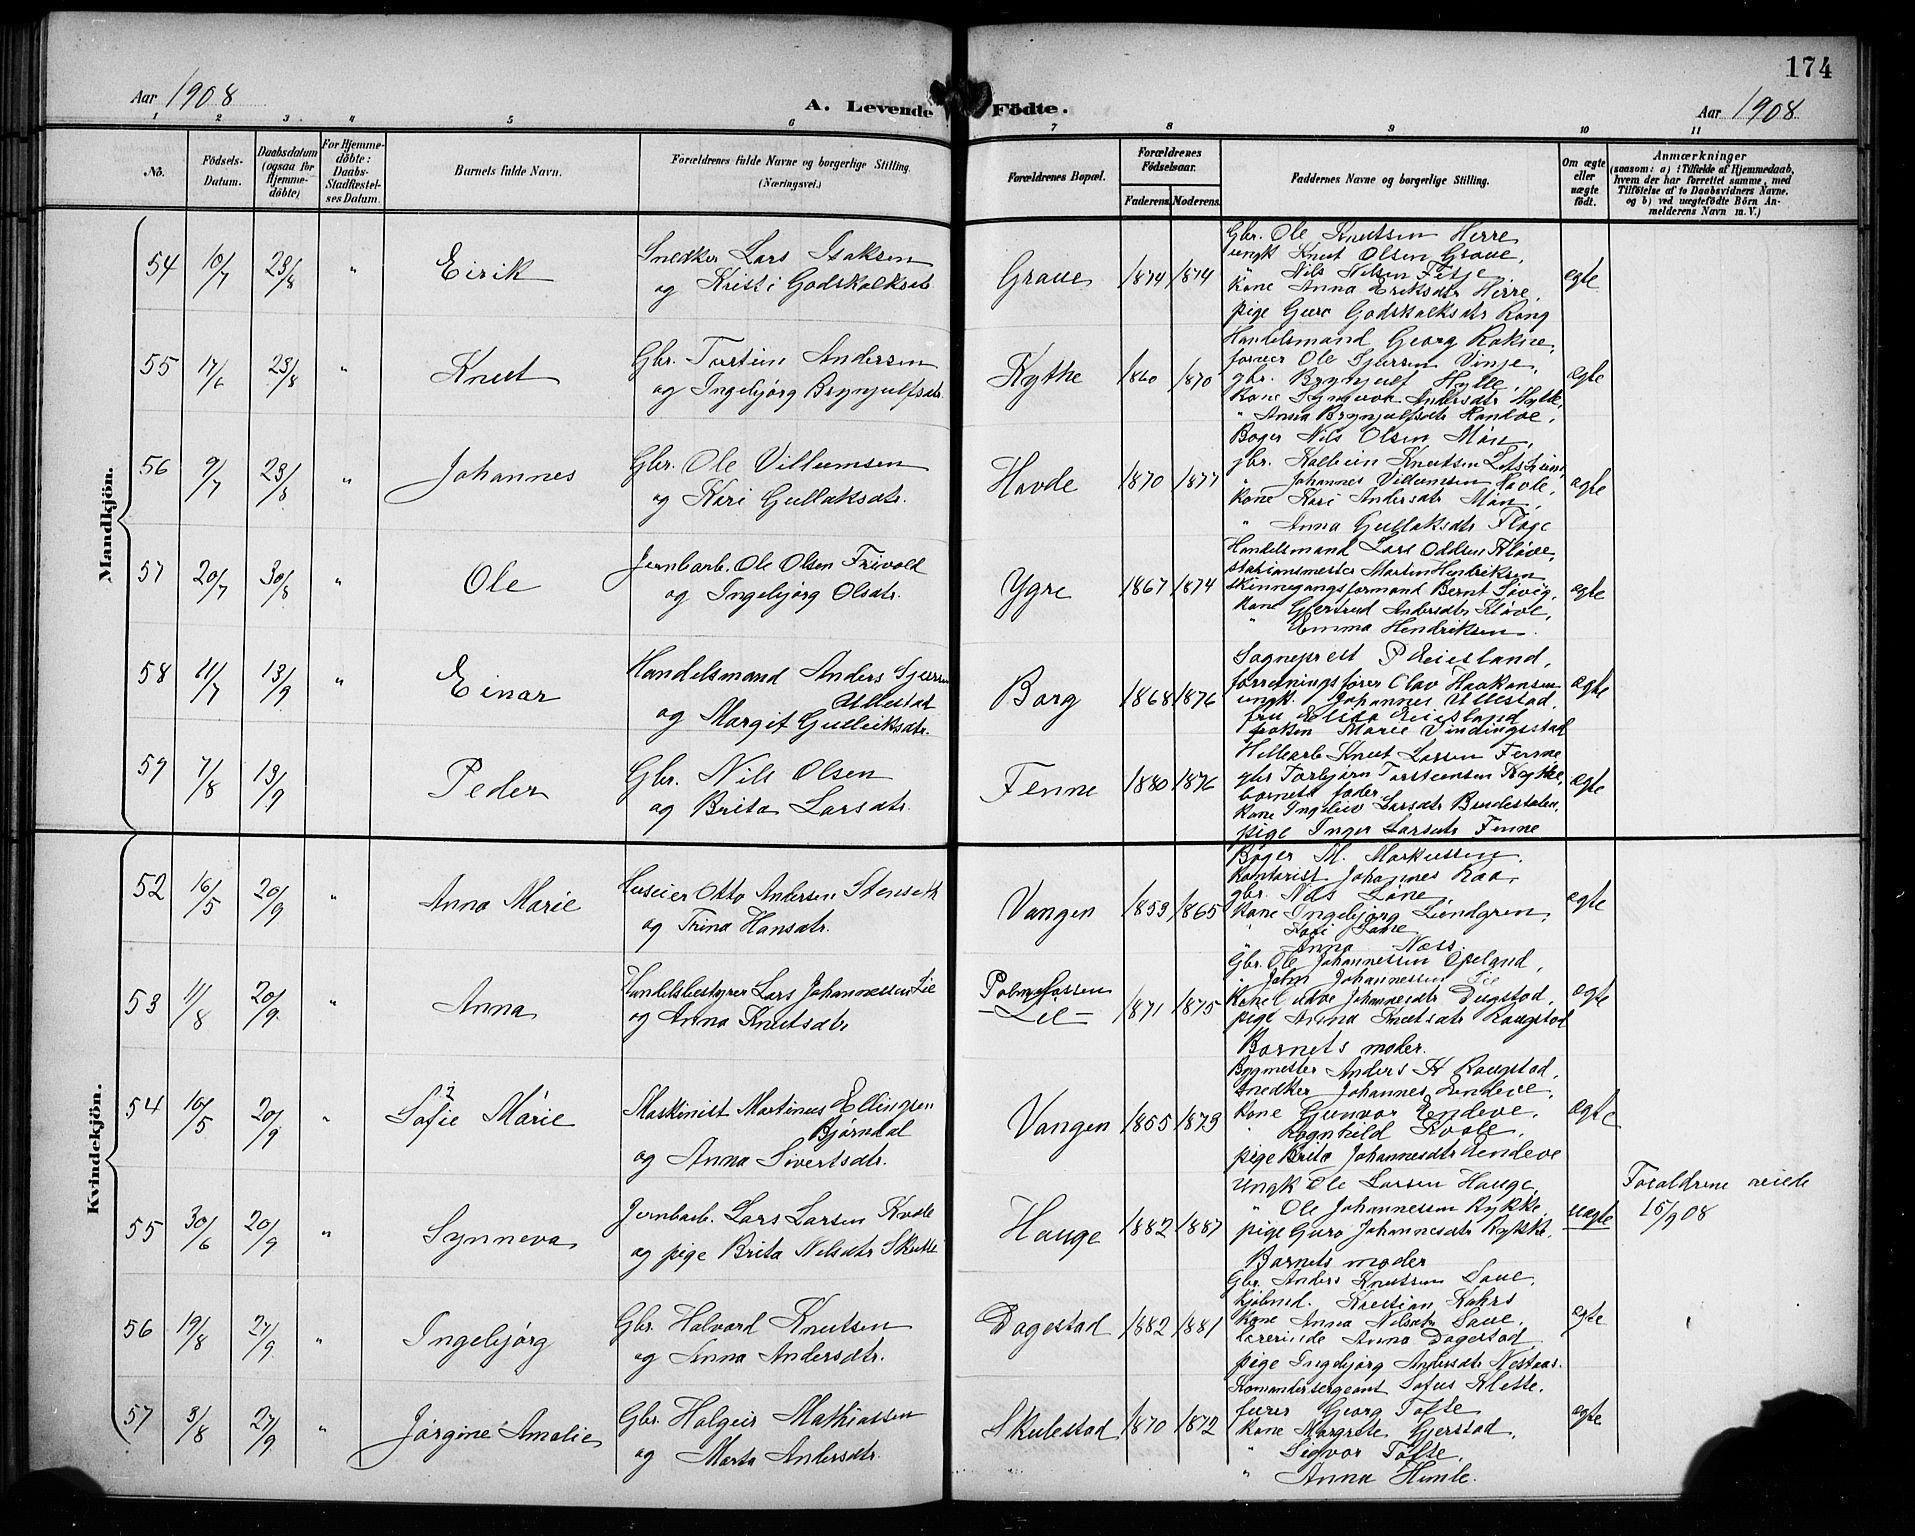 174
Aar 1908
A. Levende Födte.
Aar 1908
1 2 3 4 5 6 7 8 9 10 11
No.
Födsels-Datum.
Daabsdatum (ogsaa for Hjemmedöbte)
For Hjemmedöbte: Daabs-Stadfæstelses Datum.
Barnets fulde Navn.
Forældrenes fulde Navne og borgerlige Stilling. (Næringsvei.)
Forældrenes Bopæl.
Forældrenes Födselsaar.
Faderens. Moderens.
Faddernes Navne og borgerlige Stilling.
Om ægte eller uægte födt.
Anmærkninger
(saasom: a) i Tilfælde af Hjemmedaab, hvem der har forrettet samme, med Tilföielse af to Daabsvidners Navne. og b) ved uægtefödte Börn Anmelderens Navn m. V.)
Mandkjön.
54 10/7 23/8 " Eirik
Snekker Lars Isaksen
og Kristi Godskalksdtr
Graue 1874 1874
Gbr. Ole Knutsen Herre
ungk Knut Olsen Graue,
" Nils Nilsen Tesje
Kone Anna Eriksdtr Herre,
pige Guro Godskalksdtr Rong
ægte
55 17/6 23/8 " Knut
Gbr. Torstein Andersen
og Ingebjørg Brynjulfsdtr.
Rykke 1860 1870
Handelsmand Georg Rokne,
forver Ole Sjursen Vinje,
gbr. Brynjulf Hylle,
Kone Synneva Andersdtr Hylle,
" Anna Brynjulfsdtr Kandve,
ægte
56 9/7 23/8 " Johannes
Gbr. Ole Villumsen
og Kari Gullaksdtr.
Havde 1870 1877
Bager Nils Olsen Møn,
gbr. Kolbein Knutsen
" Johannes Villumsen Havde,
Kone Kari Andersdtr Møn,
" Anna Gullaksdtr Flage
ægte
57 20/7 30/8 " Ole
Jernbarb. Ole Olsen Trivold
og Ingebjørg Olsdtr.
Ygre 1867 1874
Handelsmand Lars Oddsen Kløve,
stationsmester Martin Hendriksen
skinnegangsformand Bernt Søvig,
Kone Gjertrud Andersdtr Kløve,
" Emma Hendriksen.
ægte
58 11/7 13/9 " Einar
Handelsmand Anders Sjursen
Ullestad
og Margit Gulleiksdtr.
Borg 1868 1876
Sogneprest P Eiesland,
forretningsfører Olav Haakonsen
ungk. Johannes Ullestad,
fru Elida Eiesland
frøken Marie Vindingsstad
ægte
59 7/8 13/9 Peder
Gbr. Nils Olsen
og Brita Larsdtr.
Fenne 1880 1876
Hellearb Knut Larsen Fenne
gbr Torbjørn Torsteinsen Rykke,
barnets fader
Kone Ingeleiv Larsdtr Bindestolen,
pige Inger Larsdtr Fenne
ægte
Kvindekjön.
52 16/5 20/9 " Anna Marie
Huseier Otto Andersen Stenseth
og Trina Hansdtr.
Vangen 1853 1865
Bager M. Markussen.
Kontorist Johannes Raa,
gbr. Nils Lone,
Kone Ingebjørg Lundgren,
" Kari Lone
" Anna Næss.
ægte
53 11/8 20/9 " Anna
Handelsbestyrer Lars Johannessen Lie
og Anna Knutsdtr
Palmafossen
- Lie - 1871 1875
Gbr. Ole Johannessen Opeland,
" John Johannessen Lie
Kone Johannesdtr Dugstad,
pige Anna Knutsdtr Raugstad
Barnets moder.
ægte
54 10/5 20/9 " Sofie Marie
Maskinist Martinus Ellingsen
Bjørndal
og Anna Sivertsdtr.
Vangen 1855 1873
Bygmester Anders H Raugstad,
snedker Johannes Endeve,
Kone Gunvor Endeve,
" Ragnhild Kvale,
pige Brita Johannesdtr Endeve
ægte
55 30/6 20/9 " Synneva
Jernbarb. Lars Larsen Kvale
og pige Brita Nilsdtr Skutle
Hauge 1882 1887
Ungk Ole Larsen Hauge,
" Ole Johannessen Rykke,
pige Guro Johannesdtr Rykke,
Barnets moder
uægte
Foraldrene reiste
15/9 08
56 19/8 27/9 " Ingebjørg
Gbr. Halvard Knutsen
og Anna Andersdtr.
Dagestad 1882 1881
Gbr. Anders Knutsen Saue,
Kjøbmd. Kristian Kahrs
Kone Anna Nilsdtr Saue,
lærerinde Anna Dagestad
pige Ingebjørg Andersdtr Nestaas.
ægte
57 3/8 27/9 " Jørgine Amalie
Gbr. Holgeir Mathiassen
og Marta Andersdtr.
Skulestad 1870 1872
Komandersergeant Sofus Klette,
furer Georg Tofte
Kone Margrete Gjerstad,
" Sigvor Tofte,
" Anna Himle.
ægte